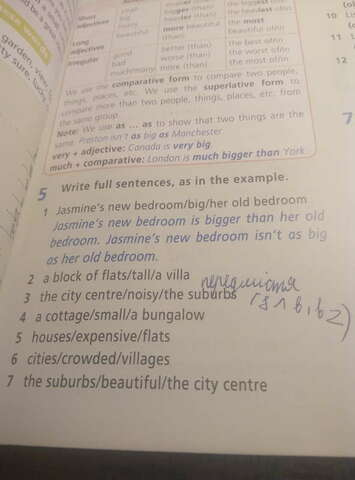 Short
adjectives
big
bigger (than)
the biggest of/in
noisy
noisier (than)
the noisiest of/in
Long
adjectives
beautiful
more beautiful
(than)
the most
beautiful of/in
Irregular
good
better (than)
the best of/in
bad
worse (than)
the worst of/in
much/many
more (than)
the most of/in
We use the comparative form to compare two people,
things, places, etc. We use the superlative form to
compare more than two people, things, places, etc. from
the same group.
Note: We use as ... as to show that two things are the
same. Preston isn't as big as Manchester.
very + adjective: Canada is very big.
much + comparative: London is much bigger than York.
5 Write full sentences, as in the example.
1 Jasmine's new bedroom/big/her old bedroom
Jasmine's new bedroom is bigger than her old
bedroom. Jasmine's new bedroom isn't as big
as her old bedroom.
2 a block of flats/tall/a villa
3 the city centre/noisy/the suburbs
4 a cottage/small/a bungalow
5 houses/expensive/flats
6 cities/crowded/villages
7 the suburbs/beautiful/the city centre
garden, view
ty sure, furni
10
11
12
7